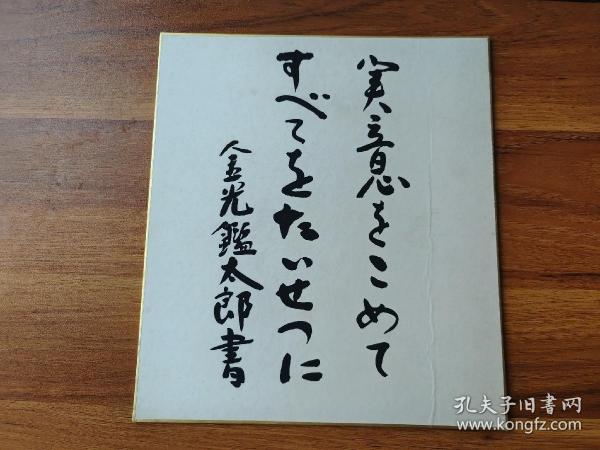 実意をこめて
すべてをたいせつに
金光鑑太郎書
孔夫子旧書网
www.kongfz.com